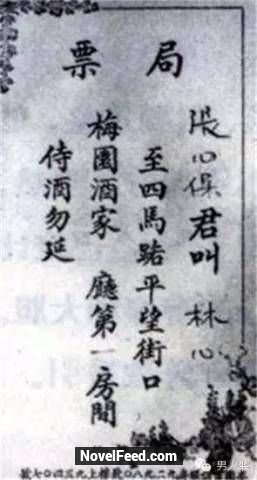 局票
張心君叫 林心
至四馬路平望街口
梅園酒家 廳第一房間
侍酒勿延
NovelFeed.com
男人装